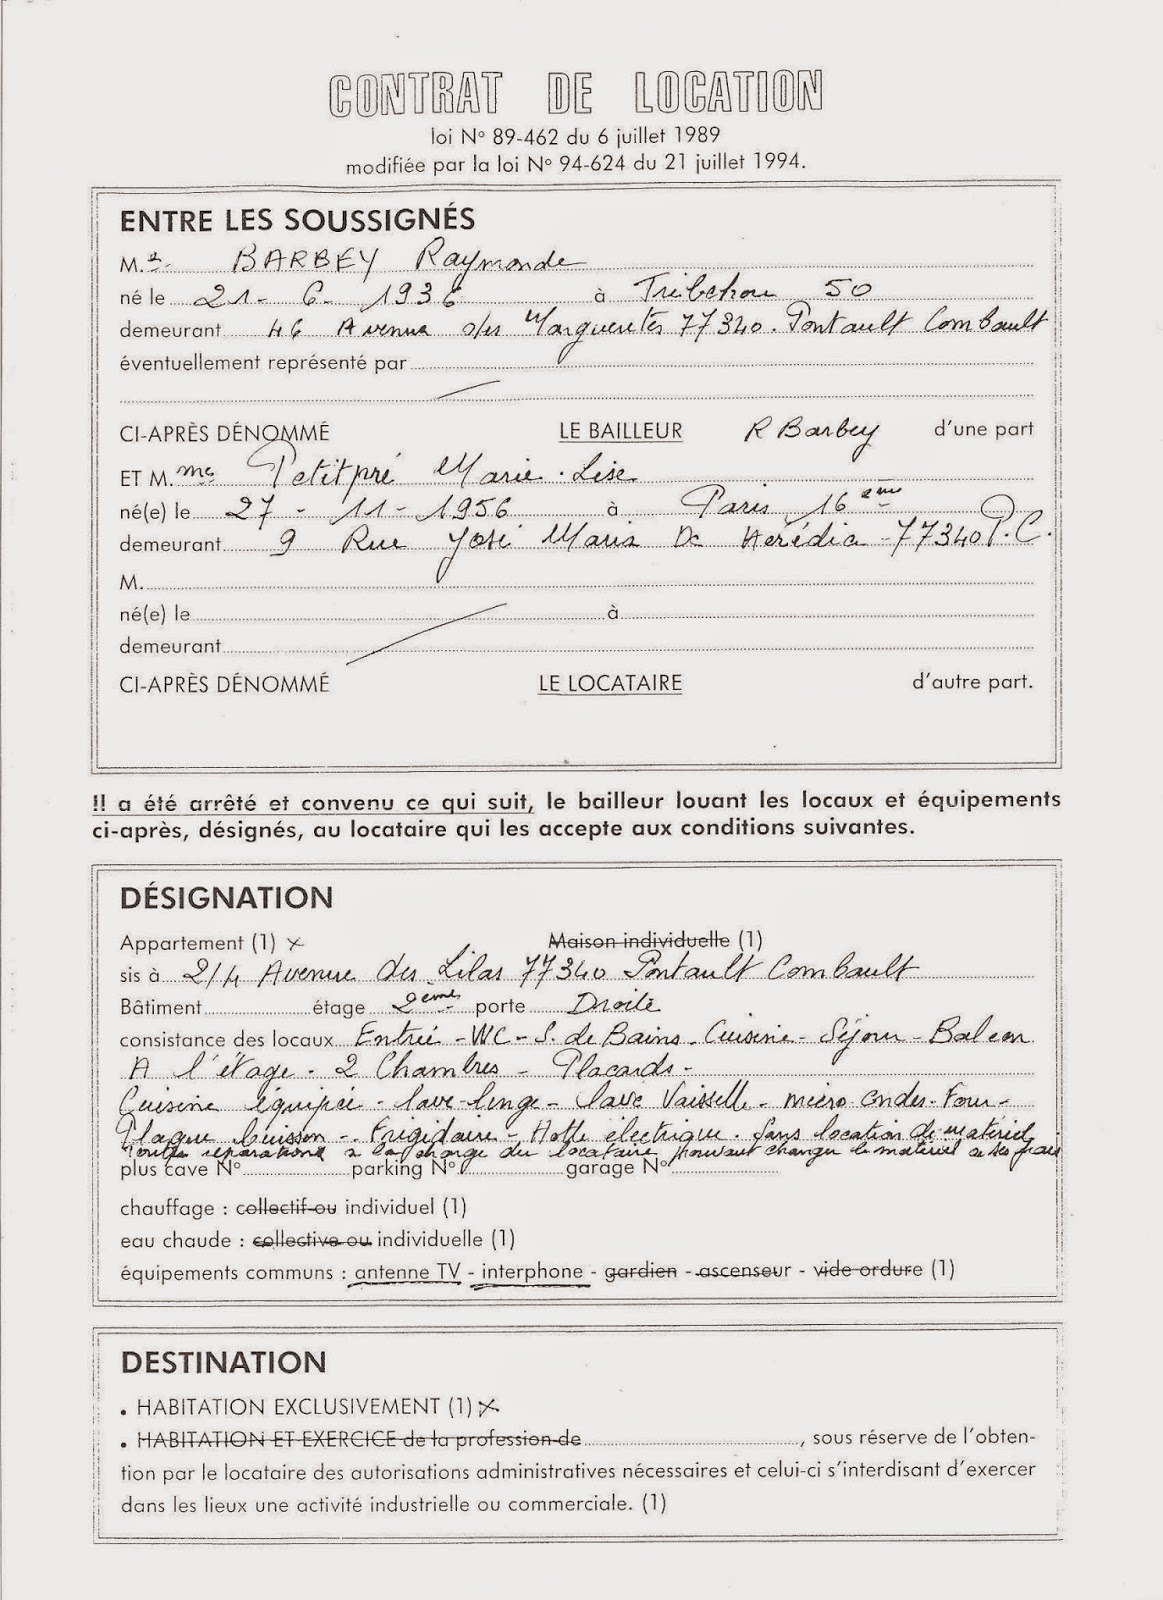 CONTRAT DE LOCATION
loi N° 89-462 du 6 juillet 1989
modifiée par la loi N° 94-624 du 21 juillet 1994.
ENTRE LES SOUSSIGNÉS
M. BARBEY Raymonde
né le 21-6-1936 à Tribehou 50
demeurant 46 Avenue des Marguerites 77340. Pontault Combault
éventuellement représenté par
CI-APRÈS DÉNOMMÉ LE BAILLEUR R Barbey d'une part
ET M.me Petitpré Marie-Lise
né(e) le 27-11-1956 à Paris 16ème
demeurant 9 Rue José Maria De Herédia -77340 P.C.
M.
né(e) le à
demeurant
CI-APRÈS DÉNOMMÉ LE LOCATAIRE d'autre part.
Il a été arrêté et convenu ce qui suit, le bailleur louant les locaux et équipements
ci-après, désignés, au locataire qui les accepte aux conditions suivantes.
DÉSIGNATION
Appartement (1) x Maison individuelle (1)
sis à 2/4 Avenue des Lilas 77340 Pontault Combault
Bâtiment étage 2ème porte Droite
consistance des locaux Entrée - WC - S. de Bains - Cuisine - Séjour - Balcon
A l'étage - 2 Chambres - Placards -
Cuisine équipée - lave-linge - lave Vaisselle - micro-ondes - Four -
Plaque Cuisson - Frigidaire - Hotte électrique. Sans location de matériel
Toutes réparations à la charge du locataire pouvant changer le matériel à ses frais
plus cave N° parking N° garage N°
chauffage : collectif ou individuel (1)
eau chaude : collective ou individuelle (1)
équipements communs : antenne TV - interphone - gardien - ascenseur - vide ordure (1)
DESTINATION
• HABITATION EXCLUSIVEMENT (1) x
• HABITATION ET EXERCICE de la profession de , sous réserve de l'obten-
tion par le locataire des autorisations administratives nécessaires et celui-ci s'interdisant d'exercer
dans les lieux une activité industrielle ou commerciale. (1)